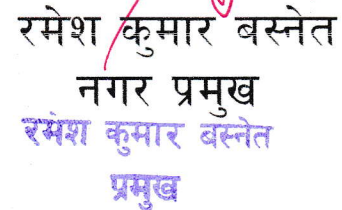 रमेश कुमार बस्नेत
नगर प्रमुख
रमेश कुमार बस्नेत
प्रमुख